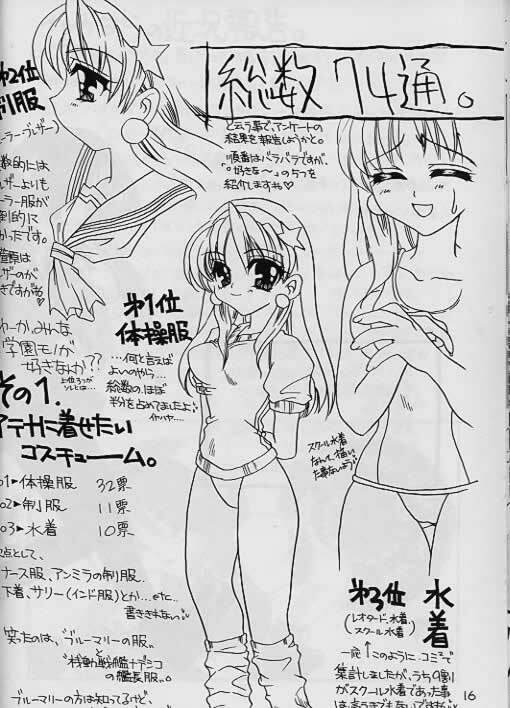 近況報告。
総数 74通。
と云う事で、アンケートの
結果を報告しようかと。
順番はバラバラですが、
"好きな〜"のうつを
紹介しますね♡
その1.
アテナに着せたい
コスチューム。
01▶体操服 32票
02▶制服 11票
03▶水着 10票
次点として、
ナース服、アンミラの制服、
下着、サリー(インド服)とか…etc…
書ききれない♡
笑ったのは、"ブルーマリーの服"
と
"機動戦艦ナデシコ
の艦長服"。
ブルーマリーの方は知ってるけど、
第1位
体操服
…何と言えば
よいのやら…
総数の、ほぼ
半分を占めてましたよ♪
イヤハヤ…
第2位
制服
(セーラー・ブレザー)
数的には
ブレザーよりも
セーラー服が
圧倒的に
多かったです。
ブレザーのが
好きですがね♡
みんな
学園モノが
好きなのか??
上位3つが
ソレとは…
スクール水着
なんて、描いた
事ないよう
第3位 水着
(レオタード、水着、
スクール水着)
一応↑このように、コミで
集計しましたが、うち9割
がスクール水着であった事
は言うまでもないですが
16